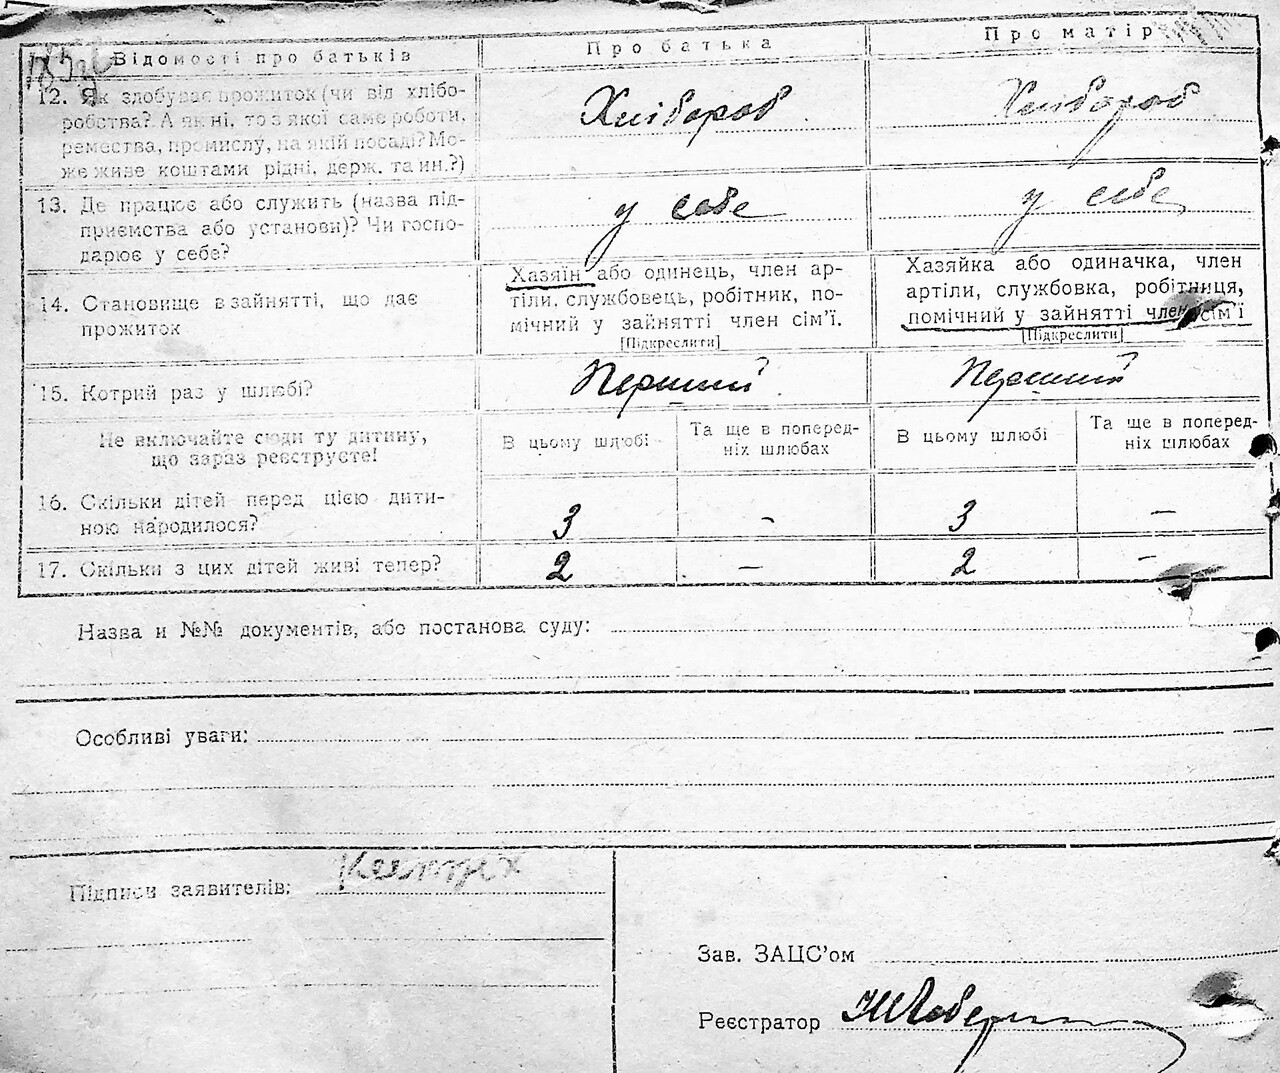 Відомості про батьків Про батька Про матір
12. Як здобуває прожиток (чи від хлібо-
робства? А як ні, то з якої саме роботи,
ремества, промислу, на якій посаді? Мо-
же живе коштами рідні, держ. та ин.?)
Хлібороб Хлібороб
13. Де працює або служить (назва під-
приємства або установи)? Чи госпо-
дарює у себе?
у себе у себе
14. Становище в зайнятті, що дає
прожиток
Хазяїн або одинець, член ар-
тіли, службовець, робітник, по-
мічний у зайнятті член сім’ї.
[Підкреслити]
Хазяйка або одиначка, член
артіли, службовка, робітниця,
помічний у зайнятті член сім’ї
[Підкреслити]
15. Котрий раз у шлюбі? Перший Перший
Не включайте сюди ту дитину,
що зараз реєструєте!
В цьому шлюбі
Та ще в поперед-
ніх шлюбах
В цьому шлюбі
Та ще в поперед-
ніх шлюбах
16. Скільки дітей перед цією дити-
ною народилося?
3 - 3 -
17. Скільки з цих дітей живі тепер? 2 - 2 -
Назва и №№ документів, або постанова суду:
Особливі уваги:
Підписи заявителів:
Зав. ЗАЦС’ом
Реєстратор